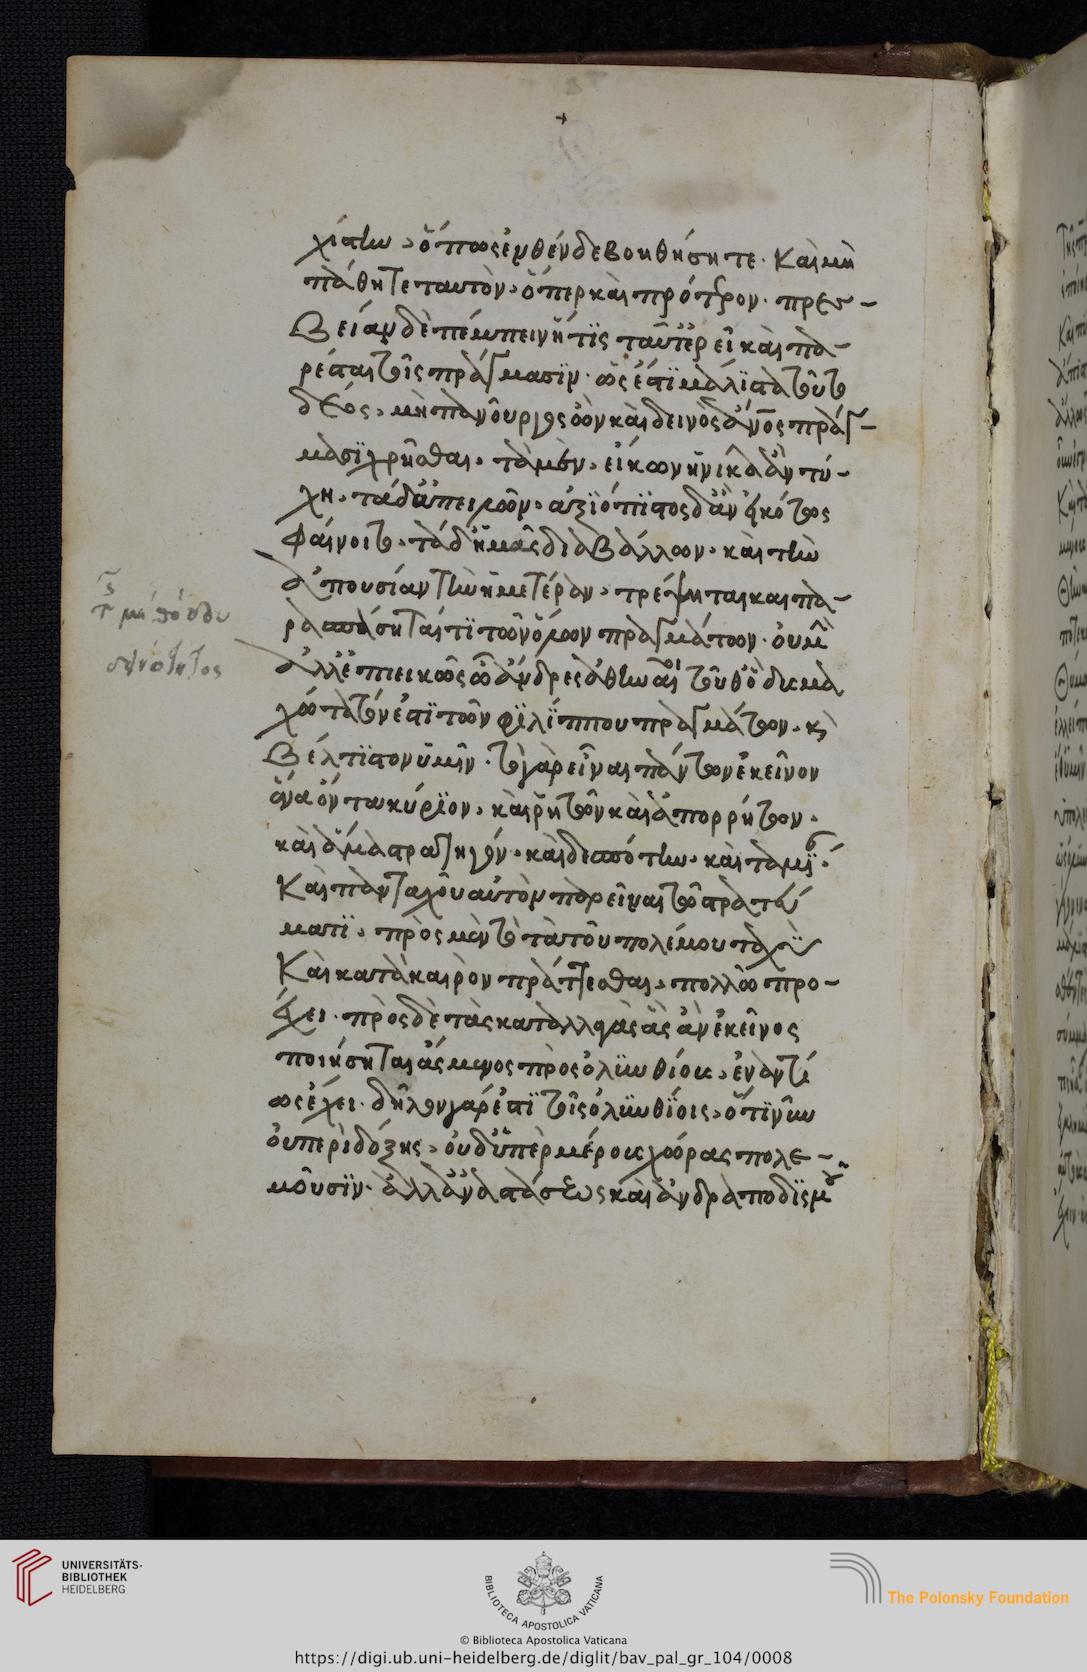 χίστην, ὅπως ἐνθένδε βοηθήσητε. καὶ μὴ
πάθητε ταυτὸν, ὅπερ καὶ πρότερον. πρεσ-
βείαν δὲ πέμπειν ἥτις ταῦτ' ἐρεῖ καὶ πα-
ρέσται τοῖς πράγμασιν. ὡς ἔστι μάλιστα τοῦτο
δέος, μὴ πανοῦργος ὢν καὶ δεινὸς ἄνος πράγ-
μασι χρῆσθαι, τὰ μὲν, εἴκων ἡνίκα ἂν τύ-
χη, τὰ δ' ἀπειλῶν, ἀξιόπιστος δ' ἂν εἰκότως
φαίνοιτο, τὰ δ' ἡμᾶς διαβάλλων, καὶ τὴν
ἀπουσίαν τὴν ἡμετέραν, τρέψηται καὶ πα-
ρασπάσηταί τι τῶν ὅλων πραγμάτων. οὐ μὴν
ἀλλ' ἐπιεικῶς ὦ ἄνδρες ἀθηναῖοι τοῦθ' ὃ δυσμα
χώτατόν ἐστι τῶν φιλίππου πραγμάτων, κ
βέλτιστον ὑμῖν. τὸ γὰρ εἶναι πάντων ἐκεῖνον
ἕνα ὄντα κύριον, καὶ ῥητῶν καὶ ἀπορρήτων.
καὶ ἅμα στρατηγὸν, καὶ δεσπότην, καὶ ταμί
καὶ πανταχοῦ αὐτὸν παρεῖναι τῷ στρατεύ
ματι, πρὸς μὲν τὸ τὰ τοῦ πολέμου ταχὺ
καὶ κατὰ καιρὸν πράττεσθαι, πολλῶ προ-
έχει. πρὸς δὲ τὰς καταλλαγὰς ἃς ἂν ἐκεῖνος
ποιήσηται ἄσμενος πρὸς ὀλυνθίους, ἐναντί
ως ἔχει. δῆλον γάρ ἐστι τοῖς ὀλυνθίοις, ὅτι νῦν
οὐ περὶ δόξης, οὐδ' ὑπὲρ μέρους χώρας πολε-
μοῦσιν. ἀλλ' ἀναστάσεως καὶ ἀνδραποδισμοῦ
https://digi.ub.uni-heidelberg.de/diglit/bav_pal_gr_104/0008
UNIVERSITÄTS-
BIBLIOTHEK
HEIDELBERG
BIBLIOTECA APOSTOLICA VATICANA
© Biblioteca Apostolica Vaticana
The Polonsky Foundation